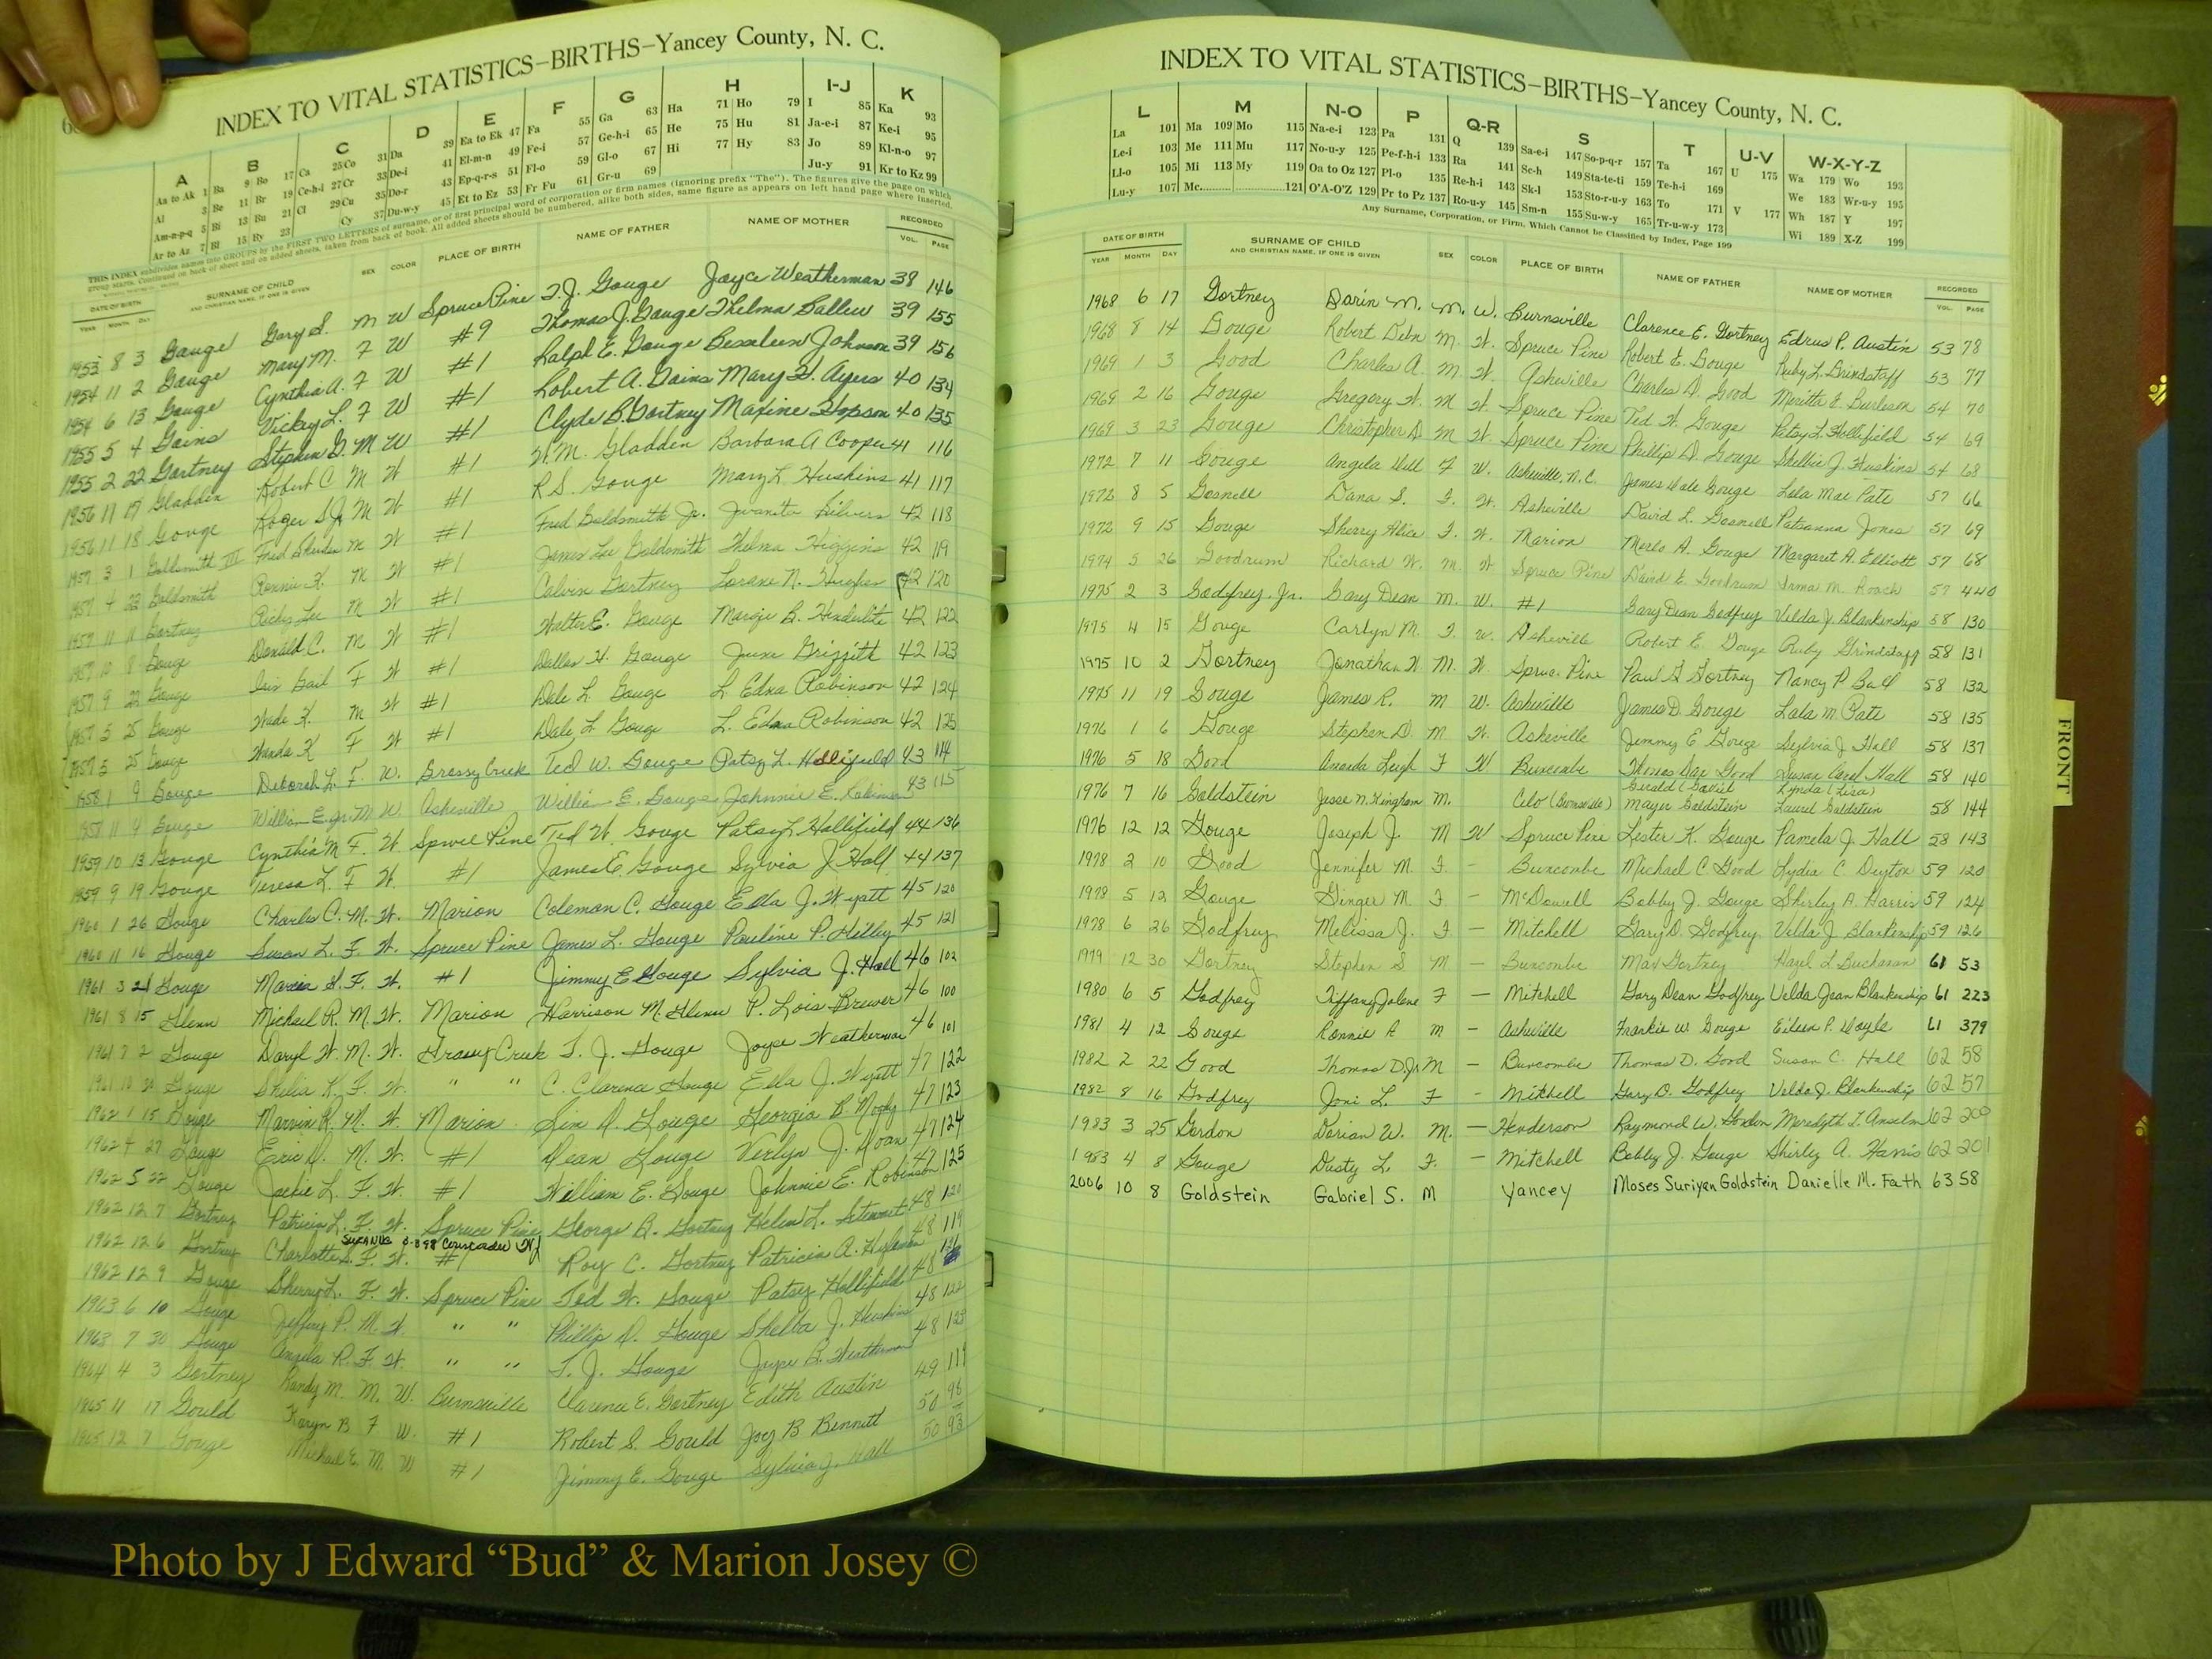 INDEX TO VITAL STATISTICS—BIRTHS—Yancey County, N. C.
A B C D E F G H I-J K
Aa to Ak 1 Ba 9 Bo 17 Ca 25 Co 31 Da 39 Ea to Ek 47 Fa 55 Ga 63 Ha 71 Ho 79 I 85 Ka 93
Al 3 Be 11 Br 19 Ce-h-i 27 Cr 33 De-i 41 El-m-n 49 Fe-i 57 Ge-h-i 65 He 75 Hu 81 Ja-e-i 87 Ke-i 95
Am-n-p-q 5 Bi 13 Bu 21 Cl 29 Cu 35 Do-r 43 Ep-q-r-s 51 Fl-o 59 Gl-o 67 Hi 77 Hy 83 Jo 89 Kl-n-o 97
Ar to Az 7 Bl 15 By 23 Cy 37 Du-w-y 45 Et to Ez 53 Fr Fu 61 Gr-u 69 Ju-y 91 Kr to Kz 99
THIS INDEX subdivides names into GROUPS by the FIRST TWO LETTERS of surname, or of first principal word of corporation or firm names (ignoring prefix "The"). The figures give the page on which
group starts. Continued on back of sheet and on added sheets, taken from back of book. All added sheets should be numbered, alike both sides, same figure as appears on left hand page where inserted.
DATE OF BIRTH SURNAME OF CHILD SEX COLOR PLACE OF BIRTH NAME OF FATHER NAME OF MOTHER RECORDED
YEAR MONTH DAY AND CHRISTIAN NAME, IF ONE IS GIVEN VOL. PAGE
1953 8 3 Gouge Gary S. M W Spruce Pine T. J. Gouge Joyce Weatherman 38 146
1954 11 2 Gouge Mary M. F W #9 Thomas J. Gouge Thelma Ballew 39 155
1954 6 13 Gouge Cynthia A. F W #1 Ralph E. Gouge Johnson 39 156
1955 5 4 Goins Vickey L. F W #1 Robert A. Goins Mary Ayers 40 134
1955 2 22 Gortney Stephen D. M W #1 Clyde B. Gortney Maxine Hopson 40 135
1956 11 17 Gladden Robert C M W #1 W. M. Gladden Barbara A Cooper 41 116
1956 11 18 Gouge Roger S Jr M W #1 R S. Gouge Mary L Huskins 41 117
1957 3 1 Goldsmith III Fred M W #1 Fred Goldsmith Jr. Juanita Silvers 42 118
1957 4 22 Goldsmith Ronnie K. M W #1 James Lee Goldsmith Thelma Higgins 42 119
1957 11 11 Gortney Ricky Lee M W #1 Calvin Gortney Lorene N. Hughes 42 120
1957 10 8 Gouge Donald C. M W #1 Walter E. Gouge Margie B. 42 122
1957 9 22 Gouge Iris Gail F W #1 Dallas H. Gouge June Grizzith 42 123
1957 5 25 Gouge Wade K. M W #1 Dale L. Gouge L. Edna Robinson 42 124
1957 5 25 Gouge Wanda K F W #1 Dale L Gouge L. Edna Robinson 42 125
1958 1 9 Gouge Deborah L. F. W. Grassy Creek Ted W. Gouge Patsy L. Hollifield 43 114
1958 11 4 Gouge William E. Jr. M W. Asheville William E. Gouge Johnnie E. Robinson 43 115
1959 10 13 Gouge Cynthia M F. W. Spruce Pine Ted W. Gouge Patsy L Hollifield 44 136
1959 9 19 Gouge Teresa L. F W. #1 James E. Gouge Sylvia J. Hall 44 137
1960 1 26 Gouge Charles C. M. W. Marion Coleman C. Gouge Ella J. Wyatt 45 120
1960 11 16 Gouge Susan L. F. W. Spruce Pine James L. Gouge Pauline P. 45 121
1961 3 21 Gouge Marcia F. W. #1 Jimmy E Gouge Sylvia J. Hall 46 102
1961 8 15 Glenn Michael R. M. W. Marion Harrison M. Glenn P. Lois Brewer 46 100
1961 7 2 Gouge Daryl W. M. W. Grassy Creek T. J. Gouge Joyce Weatherman 46 101
1961 10 Gouge Shelia K. F. W. " " C. Clarence Gouge Ella J. Wyatt 47 122
1962 1 15 Gouge Marvin R. M. W. Marion Gouge Georgia B 47 123
1962 4 27 Gouge Eric D. M. W. #1 Dean Gouge Verlyn J. Hoan 47 124
1962 5 22 Gouge Jackie L. F. W. #1 William E. Gouge Johnnie E. Robinson 47 125
1962 12 7 Gortney Patricia L. F. W. Spruce Pine George B. Gortney Helen L. 48 120
1962 12 6 Gortney Charlotte S. F. W. #1 Roy C. Gortney Patricia A. 48 119
1962 12 9 Gouge Sherry L. F. W. Spruce Pine Ted W. Gouge Patsy Hollifield 48
1963 6 10 Gouge Jeffrey P. M. W. " " Phillip D. Gouge Shelba J. Huskins 48 122
1963 7 30 Gouge Angela R. F W. " " T. J. Gouge Joyce B. Weatherman 48 123
1964 4 3 Gortney Randy M. M. W. Burnsville Clarence E. Gortney Edith Austin 49 119
1965 11 17 Gould Karyn B F W. #1 Robert S. Gould Joy B Bennett 50 96
1965 12 7 Gouge Michael E. M. W #1 Jimmy E. Gouge Sylvia J. Hall 50 93
INDEX TO VITAL STATISTICS—BIRTHS—Yancey County, N. C.
L M N-O P Q-R S T U-V W-X-Y-Z
La 101 Ma 109 Mo 115 Na-e-i 123 Pa 131 Q 139 Sa-e-i 147 So-p-q-r 157 Ta 167 U 175 Wa 179 Wo 193
Le-i 103 Me 111 Mu 117 No-u-y 125 Pe-f-h-i 133 Ra 141 Sc-h 149 Sta-te-ti 159 Te-h-i 169 We 183 Wr-u-y 195
Ll-o 105 Mi 113 My 119 Oa to Oz 127 Pl-o 135 Re-h-i 143 Sk-l 153 Sto-r-u-y 163 To 171 V 177 Wh 187 Y 197
Lu-y 107 Mc 121 O'A-O'Z 129 Pr to Pz 137 Ro-u-y 145 Sm-n 155 Su-w-y 165 Tr-u-w-y 173 Wi 189 X-Z 199
Any Surname, Corporation, or Firm, Which Cannot be Classified by Index, Page 199
DATE OF BIRTH SURNAME OF CHILD SEX COLOR PLACE OF BIRTH NAME OF FATHER NAME OF MOTHER RECORDED
YEAR MONTH DAY AND CHRISTIAN NAME, IF ONE IS GIVEN VOL. PAGE
1968 6 17 Gortney Darin M. M. W. Burnsville Clarence E. Gortney Edrus P. Austin 53 78
1968 8 14 Gouge Robert M. W. Spruce Pine Robert E. Gouge Ruby L. Grindstaff 53 77
1969 1 3 Good Charles A. M W. Asheville Charles D. Good E. Burleson 54 70
1969 2 16 Gouge Gregory W. M W. Spruce Pine Ted W. Gouge Patsy L. Hollifield 54 69
1969 3 23 Gouge Christopher D M W. Spruce Pine Phillip D. Gouge Shelbie J. Huskins 54 68
1972 7 11 Gouge Angela Dell F W. Asheville, N.C. James Dale Gouge Lola Mae Pate 57 66
1972 8 5 Gosnell Dana S. F. W. Asheville David L. Gosnell Patsanna Jones 57 69
1972 9 15 Gouge Sherry Alice F. W. Marion Merlo A. Gouge Margaret A. Elliott 57 68
1974 5 26 Goodrum Richard W. M. W Spruce Pine David E. Goodrum Irma M. Roach 57 440
1975 2 3 Godfrey, Jr. Gary Dean M. W. #1 Gary Dean Godfrey Velda J. Blankenship 58 130
1975 4 15 Gouge Carlyn M. F. W. Asheville Robert E. Gouge Ruby Grindstaff 58 131
1975 10 2 Gortney Jonathan W. M. W. Spruce Pine Paul G Gortney Nancy P Ball 58 132
1975 11 19 Gouge James R. M W. Asheville James D. Gouge Lola M. Pate 58 135
1976 1 6 Gouge Stephen D. M W. Asheville Jimmy E Gouge Sylvia J. Hall 58 137
1976 5 18 Good Amanda Leigh F W Buncombe Thomas Dae Good Susan Carol Hall 58 140
Gerald (Gavriel Lynda (Lisa)
1976 7 16 Goldstein Jesse N. Kingham M. Celo (Burnsville) Mayer Goldstein Laurel Goldstein 58 144
1976 12 12 Gouge Joseph J. M W Spruce Pine Lester K. Gouge Pamela J. Hall 58 143
1978 2 10 Good Jennifer M. F. - Buncombe Michael C Good Lydia C. Deyton 59 120
1978 5 12 Gouge Ginger M. F - McDowell Bobby J. Gouge Shirley A. Harris 59 124
1978 6 26 Godfrey Melissa J. F - Mitchell Gary D. Godfrey Velda J. Blankenship 59 126
1979 12 30 Gortney Stephen S M - Buncombe Max Gortney Hazel L Buchanan 61 53
1980 6 5 Godfrey Tiffany Jolene F - Mitchell Gary Dean Godfrey Velda Jean Blankenship 61 223
1981 4 12 Gouge Ronnie A M - Asheville Frankie W. Gouge Eileen P. Doyle 61 379
1982 2 22 Good Thomas D. Jr M - Buncombe Thomas D. Good Susan C. Hall 62 58
1982 8 16 Godfrey Joni L. F - Mitchell Gary D. Godfrey Velda J. Blankenship 62 57
1983 3 25 Gordon Dorian W. M. - Henderson Raymond W. Gordon Meredyth T. Anselm 62 200
1983 4 8 Gouge Dusty L. F. - Mitchell Bobby J. Gouge Shirley A. Harris 62 201
2006 10 8 Goldstein Gabriel S. M Yancey Moses Suriyan Goldstein Danielle M. Fath 63 58
FRONT
Photo by J Edward “Bud” & Marion Josey ©